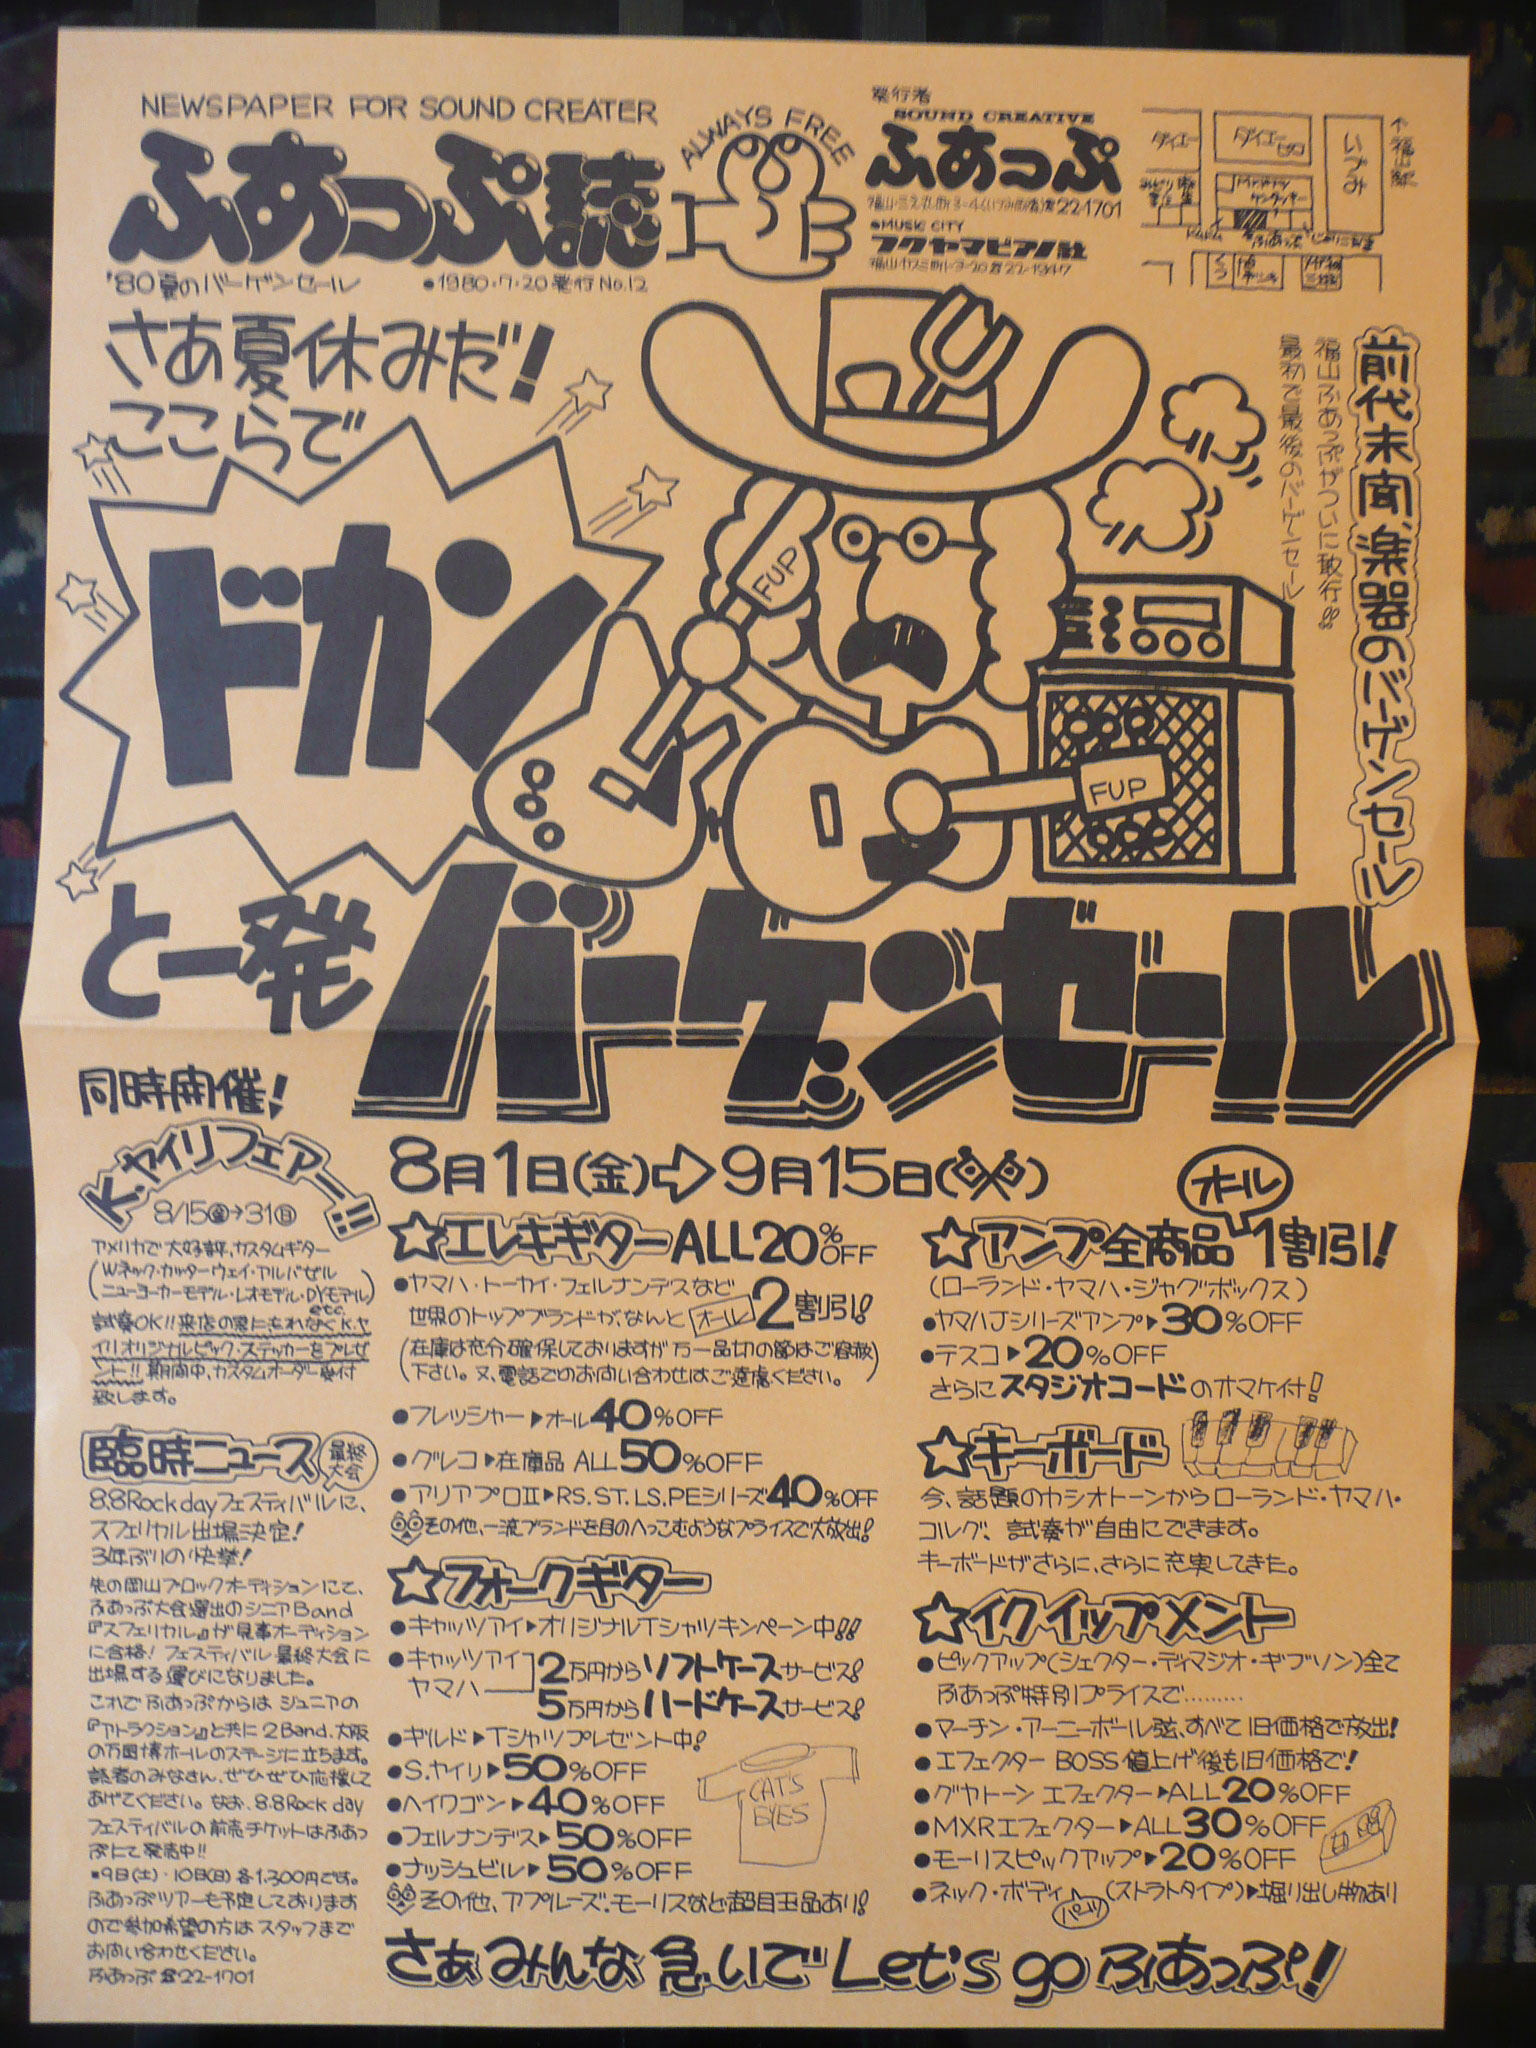 NEWSPAPER FOR SOUND CREATER
ふあっぷ誌
'80夏のバーゲンセール
●1980・7・20発行 No.12
ALWAYS FREE
発行者
SOUND CREATIVE
ふあっぷ
22-1701
●MUSIC CITY
フクヤマピアノ社
22-1947
ダイエー
ダイエー
いづみ
↑福山駅
さあ夏休みだ!
ここらで
ドカン
と一発
バーゲンセール
FUP
FUP
前代未聞、楽器のバーゲンセール
福山ふあっぷがついに敢行!!
最初で最後のバーゲンセール
同時開催!
K.ヤイリフェアー!!
8/15金→31日
アメリカで大好評、カスタムギター
(Wネック・カッターウェイ・アルバゼル
ニューヨーカーモデル・レオモデル・DYモデル)
etc.
試奏OK!! 来店の君にもれなくK.ヤ
イリオリジナルピック・ステッカーをプレゼ
ント!! 期間中、カスタムオーダー受付
致します。
臨時ニュース
最終大会
8.8Rock dayフェスティバルに、
スフェリカル出場決定!
3年ぶりの快挙!
先の岡山ブロックオーディションにて、
ふあっぷ大会選出のシニアBand
『スフェリカル』が見事オーディション
に合格! フェスティバル最終大会に
出場する運びになりました。
これでふあっぷからはジュニアの
『アトラクション』と共に2Band、大阪
の万国博ホールのステージに立ちます。
読者のみなさん、ぜひぜひ応援して
あげてください。なお、8.8Rock day
フェスティバルの前売チケットはふあっ
ぷにて発売中!!
※9日(土)・10日(日)各1,300円です。
ふあっぷツアーも予定しております
ので参加希望の方はスタッフまで
お問い合わせください。
ふあっぷ☎22-1701
8月1日(金)⇨9月15日(祭)
☆エレキギター ALL20%OFF
●ヤマハ・トーカイ・フェルナンデスなど
世界のトップブランドが、なんと オール 2割引!!
(在庫は充分確保しておりますが万一品切の節はご容赦
下さい。又、電話でのお問い合わせはご遠慮ください。)
●フレッシャー▶オール40%OFF
●グレコ▶在庫品 ALL50%OFF
●アリアプロⅡ▶RS.ST.LS.PEシリーズ40%OFF
その他、一流ブランドを目のへっこむようなプライスで大放出!
☆フォークギター
●キャッツアイ▶オリジナルTシャツキンペーン中!!
●キャッツアイ
ヤマハ
2万円からソフトケースサービス!
5万円からハードケースサービス!
●ギルド▶Tシャツプレゼント中!
●S.ヤイリ▶50%OFF
●ヘイワゴン▶40%OFF
●フェルナンデス▶50%OFF
●ナッシュビル▶50%OFF
その他、アプルーズ・モーリスなど超目玉品あり!
CAT'S
EYES
オール
☆アンプ全商品 1割引!
(ローランド・ヤマハ・ジャグボックス)
●ヤマハJシリーズアンプ▶30%OFF
●テスコ▶20%OFF
さらにスタジオコードのオマケ付!
☆キーボード
今、話題のカシオトーンからローランド・ヤマハ・
コルグ、試奏が自由にできます。
キーボードがさらに、さらに充実してきた。
☆イクイップメント
●ピックアップ(シェクター・ディマジオ・ギブソン)全て
ふあっぷ特別プライスで………
●マーチン・アーニーボール弦、すべて旧価格で放出!
●エフェクター BOSS値上げ後も旧価格で!
●グヤトーン エフェクター▶ALL20%OFF
●MXRエフェクター▶ALL30%OFF
●モーリスピックアップ▶20%OFF
●ネック・ボディ(ストラトタイプ)▶掘り出し物あり
パーツ
さぁみんな急いで Let's go ふあっぷ!